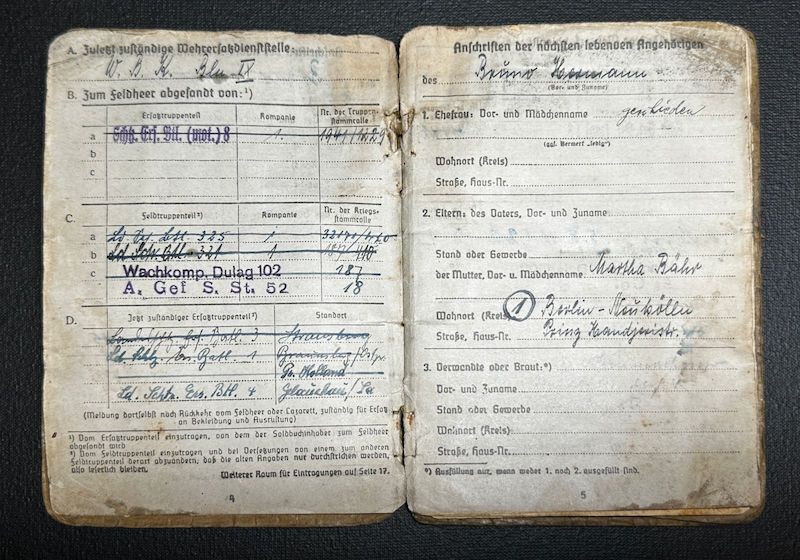 A. Zuletzt zuständige Wehrersatzdienststelle
W. B. K. Bln. IX
B. Zum Feldheer abgesandt von:¹)
Ersatztruppenteil Kompanie Nr. der Truppenstammrolle
a Schtz. Ers. Btl. (mot.) 8 1. 1941/1229
b
c
C. Feldtruppenteil²) Kompanie Nr. der Kriegsstammrolle
a 325 1
b 1
c Wachkomp. Dulag 102 187
A. Gef S. St. 52 18
D. Jetzt zuständiger Ersatztruppenteil²) Standort
3 Strausberg
1 Braunsberg/Ostpr.
Pr. Holland
Ld. Schtz. Ers. Btl. 4 Glauchau/Sa
(Meldung dortselbst nach Rückkehr vom Feldheer oder Lazarett, zuständig für Ersatz
an Bekleidung und Ausrüstung)
¹) Vom Ersatztruppenteil einzutragen, von dem der Soldbuchinhaber zum Feldheer
abgesandt wird
²) Vom Feldtruppenteil einzutragen und bei Versetzungen von einem zum anderen
Feldtruppenteil derart abzuändern, daß die alten Angaben nur durchstrichen werden,
also leserlich bleiben.
Weiterer Raum für Eintragungen auf Seite 17.
4
Anschriften der nächsten lebenden Angehörigen
des Bruno Hermann
(Vor- und Zuname)
1. Ehefrau: Vor- und Mädchenname geschieden
(ggf. Vermerk „ledig")
Wohnort (Kreis)
Straße, Haus-Nr.
2. Eltern: des Vaters, Vor- und Zuname
Stand oder Gewerbe
der Mutter, Vor- u. Mädchenname Martha Bähr
Wohnort (Kreis) 1 Berlin-Neukölln
Straße, Haus-Nr. Prinz Handjeristr.
3. Verwandte oder Braut:*)
Vor- und Zuname
Stand oder Gewerbe
Wohnort (Kreis)
Straße, Haus-Nr.
*) Ausfüllung nur, wenn weder 1. noch 2. ausgefüllt sind.
5